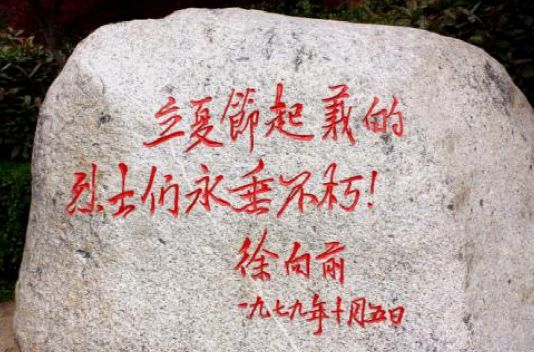 立夏節起義的
烈士们永垂不朽!
徐向前
一九七九年十月五日